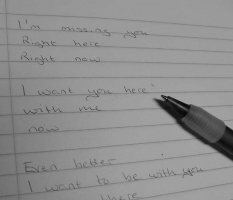 I'm missing you
Right here
Right now
I want you here
with me
now
Even better
I want to be with you
there